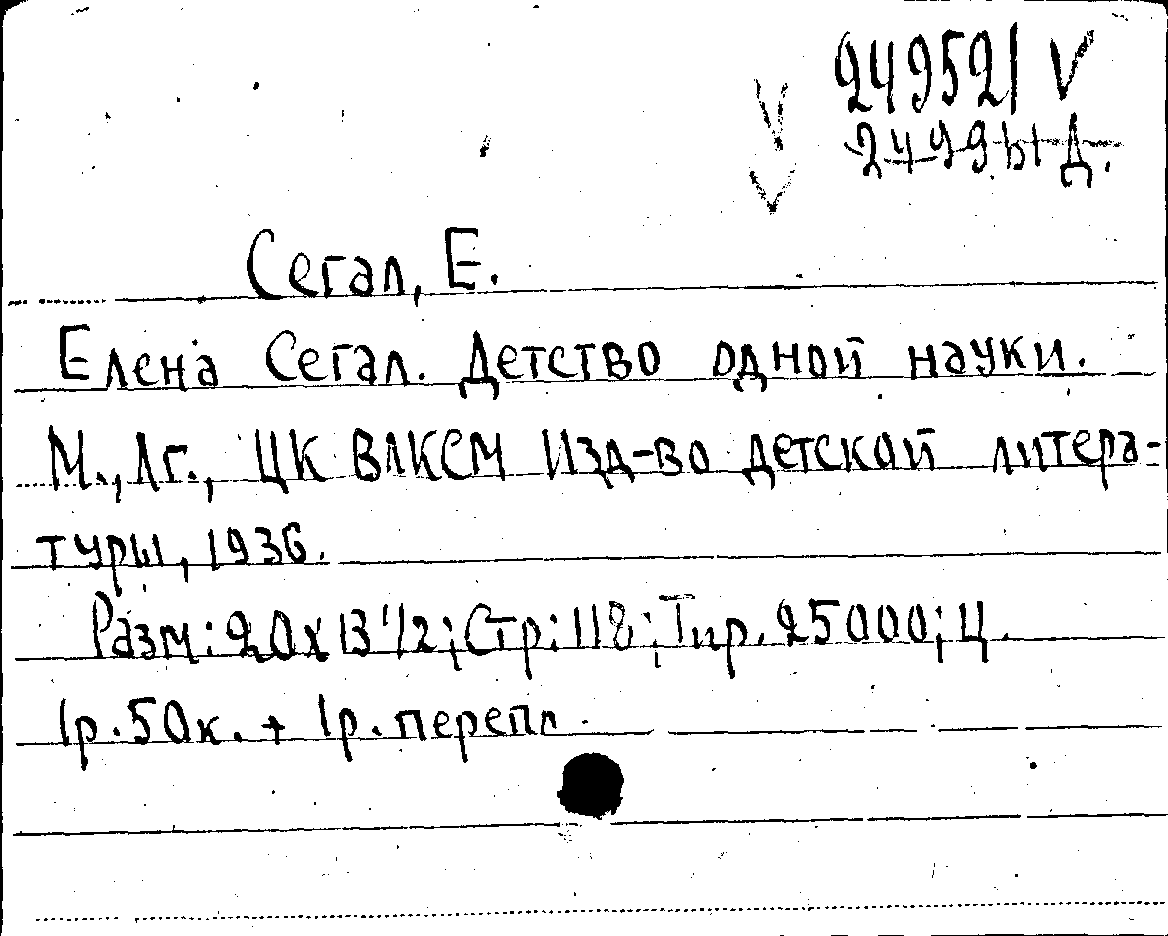 249521 V
Сегал, Е.
Елена Сегал. Детство одной науки.
М., Лг., ЦК ВЛКСМ Изд-во детской литера-
туры, 1936.
Разм: 20х13 1/2; Стр: 118; Тир. 25000; Ц.
1р. 50к. + 1р. перепл.